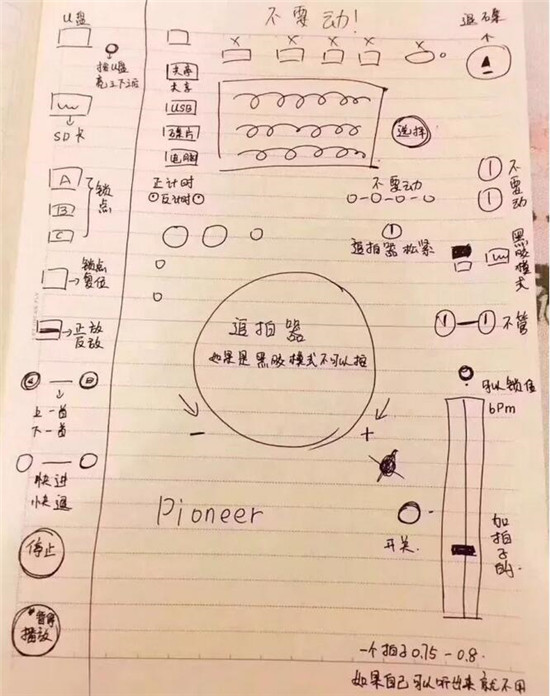 U盘
不要动!
退碟
拔U盘
亮三下拔
共享
共享
USB
碟片
电脑
SD卡
选择
A
B
C
锁点
正计时
反计时
不要动
不要动
追拍器松紧
黑胶模式
锁点
复位
正放
反放
追拍器
如果是黑胶模式不可以拍
不管
可以锁值
bpm
上一首
下一首
-
+
快进
快退
Pioneer
开关
加拍子的
停止
暂停
播放
一个拍子0.75-0.8
如果自己可以听出来就不用